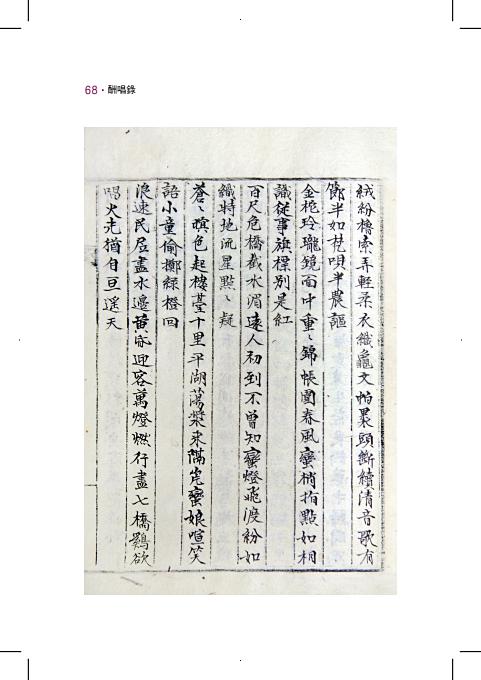 68·酬唱錄
絨紛櫓索弄輕柔衣織龜文帕裹頭斷續清音歌有
節半如梵唄半農謳
金桅玲瓏鏡面中重〻錦帳圍春風蠻梢指點如相
識從事旗標別是紅
百尺危橋截水湄遠人初到不曾知蠻燈飛渡紛如
織特地流星點〻疑
蒼〻暝色起樓臺十里平湖蕩槳來隔岸蠻娘喧笑
語小童偷擲綠橙回
浪速民居盡水邊黃麻迎客萬燈燃行盡七橋鷄欲
唱火光猶自亘遙天